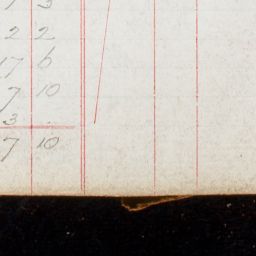 2 2
17 6
7 10
3 .
7 10